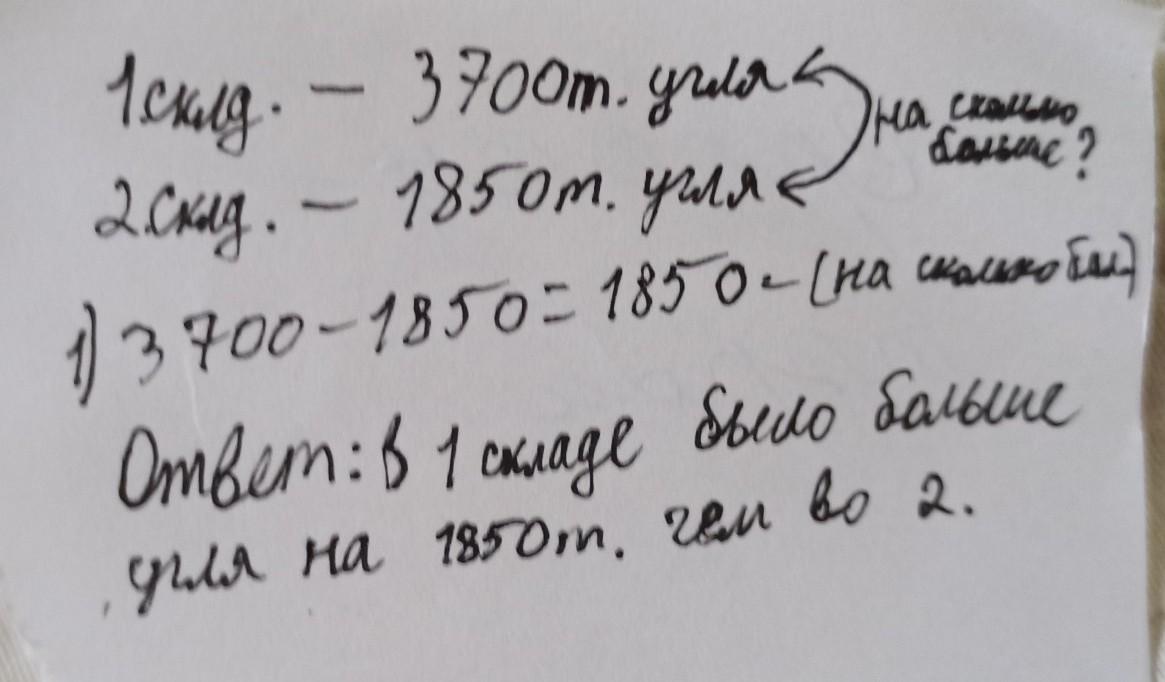 1 склд. — 3700т. угля
на сколько
больше?
2 склд. — 1850т. угля
1) 3700-1850=1850-(на сколько бол.)
Ответ: в 1 складе было больше
угля на 1850т. чем во 2.